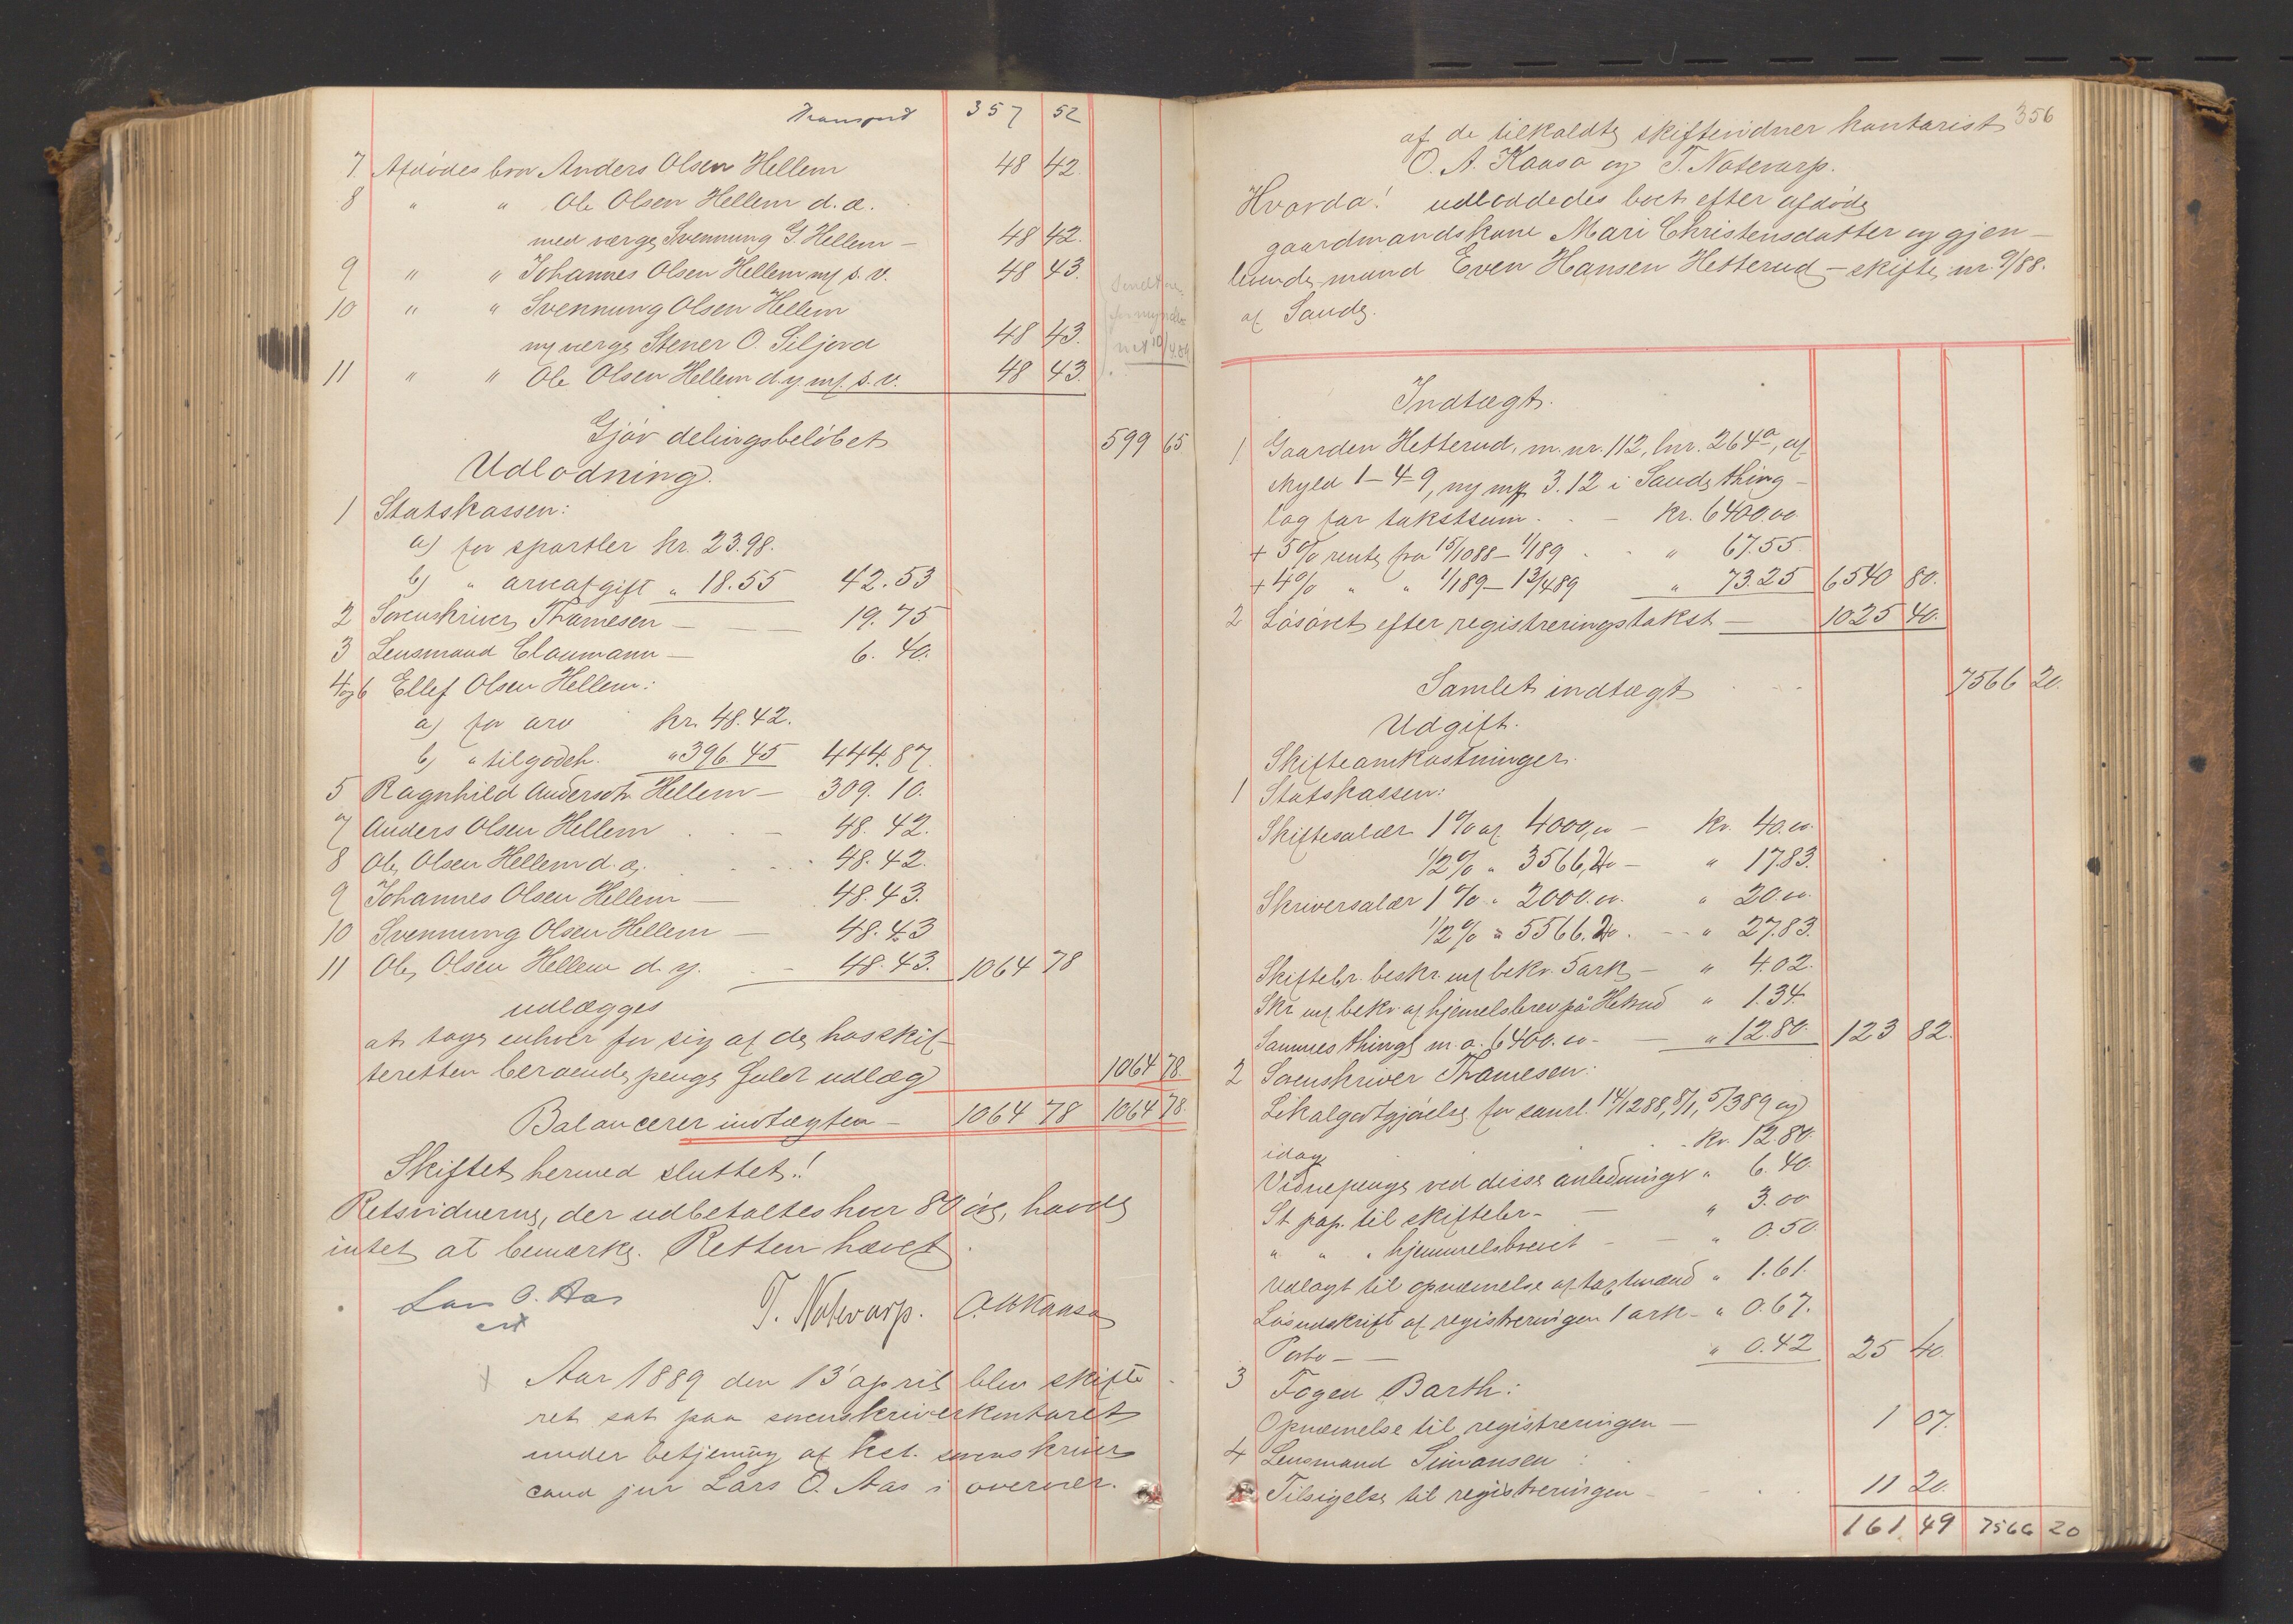 Transport 357 52
7 Afdødes bror Anders Olsen Hellem 48 42.
8 " " Ole Olsen Hellem d. æ.
med værge Svennung G. Hellem – 48 42.
9 " " Johannes Olsen Hellem mf s. v. 48 43.
10 " " Svennung Olsen Hellem
mf værge Stener O. Siljord 48 43.
11 " " Ole Olsen Hellem d. y. mf. s. v. 48 43.
Gjør delingsbeløbet 599 65
Udlodning.
1 Statskassen:
a) for sportler kr. 23.98.
b) " arveafgift " 18.55 42.53
2 Sorenskriver Thomesen – 19.75
3 Lensmand Cloumann – 6.40.
4 og 6 Ellef Olsen Hellem:
a) for arv kr. 48.42.
b) " tilgodeh. " 396.45 444.87.
5 Ragnhild Andersdtr Hellem – 309.10.
7 Anders Olsen Hellem – 48.42.
8 Ole Olsen Hellem d. æ. 48.42.
9 Johannes Olsen Hellem – 48.43.
10 Svennung Olsen Hellem – 48.43
11 Ole Olsen Hellem d. y. – 48.43. 1064 78
udlægges
at tage enhver for sig af de hos skif-
teretten beroende penge fuldt udlæg 1064 78.
Balancerer indtægten – 1064 78 1064 78.
Skiftet hermed sluttet!
Retsvidnerne, der udbetaltes hver 80 øre, havde
intet at bemærke. Retten hævet.
Lars O. Aas
cst
T. Notevarp. O. A. Kaasa
Aar 1889 den 13' april blev skifte-
ret sat paa sorenskriverkontoret
under betjening af kst. sorenskriver
cand jur Lars O. Aas i overvær.
356
af de tilkaldte skiftevidner kontorist
O. A. Kaasa og T. Notevarp.
Hvorda! udloddedes boet efter afdøde
gaardmandskone Mari Christensdatter og gjen-
levende mand Even Hansen Hetterud – skifte nr. 9/88.
af Saude.
Indtægt.
1 Gaarden Hetterud, m. nr. 112, lnr. 264a, af
skyld 1–4–9, ny mf 3.12 i Saude thing-
lag for takstsum – kr. 6400.00
+ 5% rente fra 15/1088 – 1/189 " 67.55
+ 4% " " 1/189 – 13/489 " 73.25 6540 80.
2 Løsøret efter registreringstakst – 1025 40.
Samlet indtægt 7566 20.
Udgift.
Skifteomkostninger.
1 Statskassen:
Skiftesalær 1% af 4000,00 – kr. 40.00.
1/2% " 3566,20 – " 17.83.
Skriversalær 1% " 2000.00. " 20.00.
1/2% " 5566.20. – " 27.83.
Skiftebr. beskr. mf bekr. 5 ark – " 4.02.
Skr mf bekr. af hjemelsbrev på Hetrud " 1.34.
Sammes thingl m. a. 6400.00 – " 12.80. 123 82.
2 Sorenskriver Thomesen:
Lokalgodtgjørelse for saml. 14/1288, 8/1, 5/389 og
idag kr. 12.80.
Vidnepenge ved disse anledninger " 6.40.
St. pap. til skiftebr – " 3.00
" " " hjemmelsbrevet – " 0.50.
Udlagt til opnævnelse af taxtmænd " 1.61.
Løs udskrift af registreringen 1 ark – " 0.67.
Porto – " 0.42 25 40.
3 Foged Barth:
Opnævnelse til registreringen – 1 07.
4 Lensmand Simonsen:
Tilsigelse til registreringen – 11 20.
161 49 7566 20